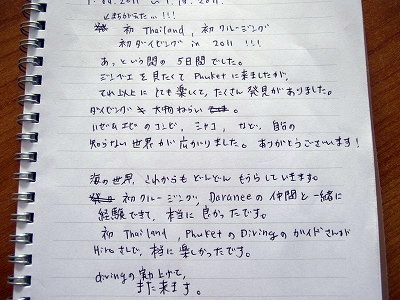 まちがえた…!!!
初 Thailand, 初 クルージング
初 ダイビング in 2011 !!!
あっという間の 5日間でした。
ジンベエを見たくて Phuket に来ましたが、
それ以上に とても楽しくて、たくさん発見がありました。
ダイビング 大物ねらい
ハゼとエビ のコンビ, シャコ, など, 自分の
知らない世界が広がりました。ありがとうございます!
海の世界、これからも どんどん もぐらしていきます。
初クルージング, Daranee の仲間と一緒に
経験できて, 本当に良かったです。
初 Thailand, Phuket の Diving のガイドさんが
Hiroさんで, 本当に楽しかったです。
divingの 上げて,
また来ます。